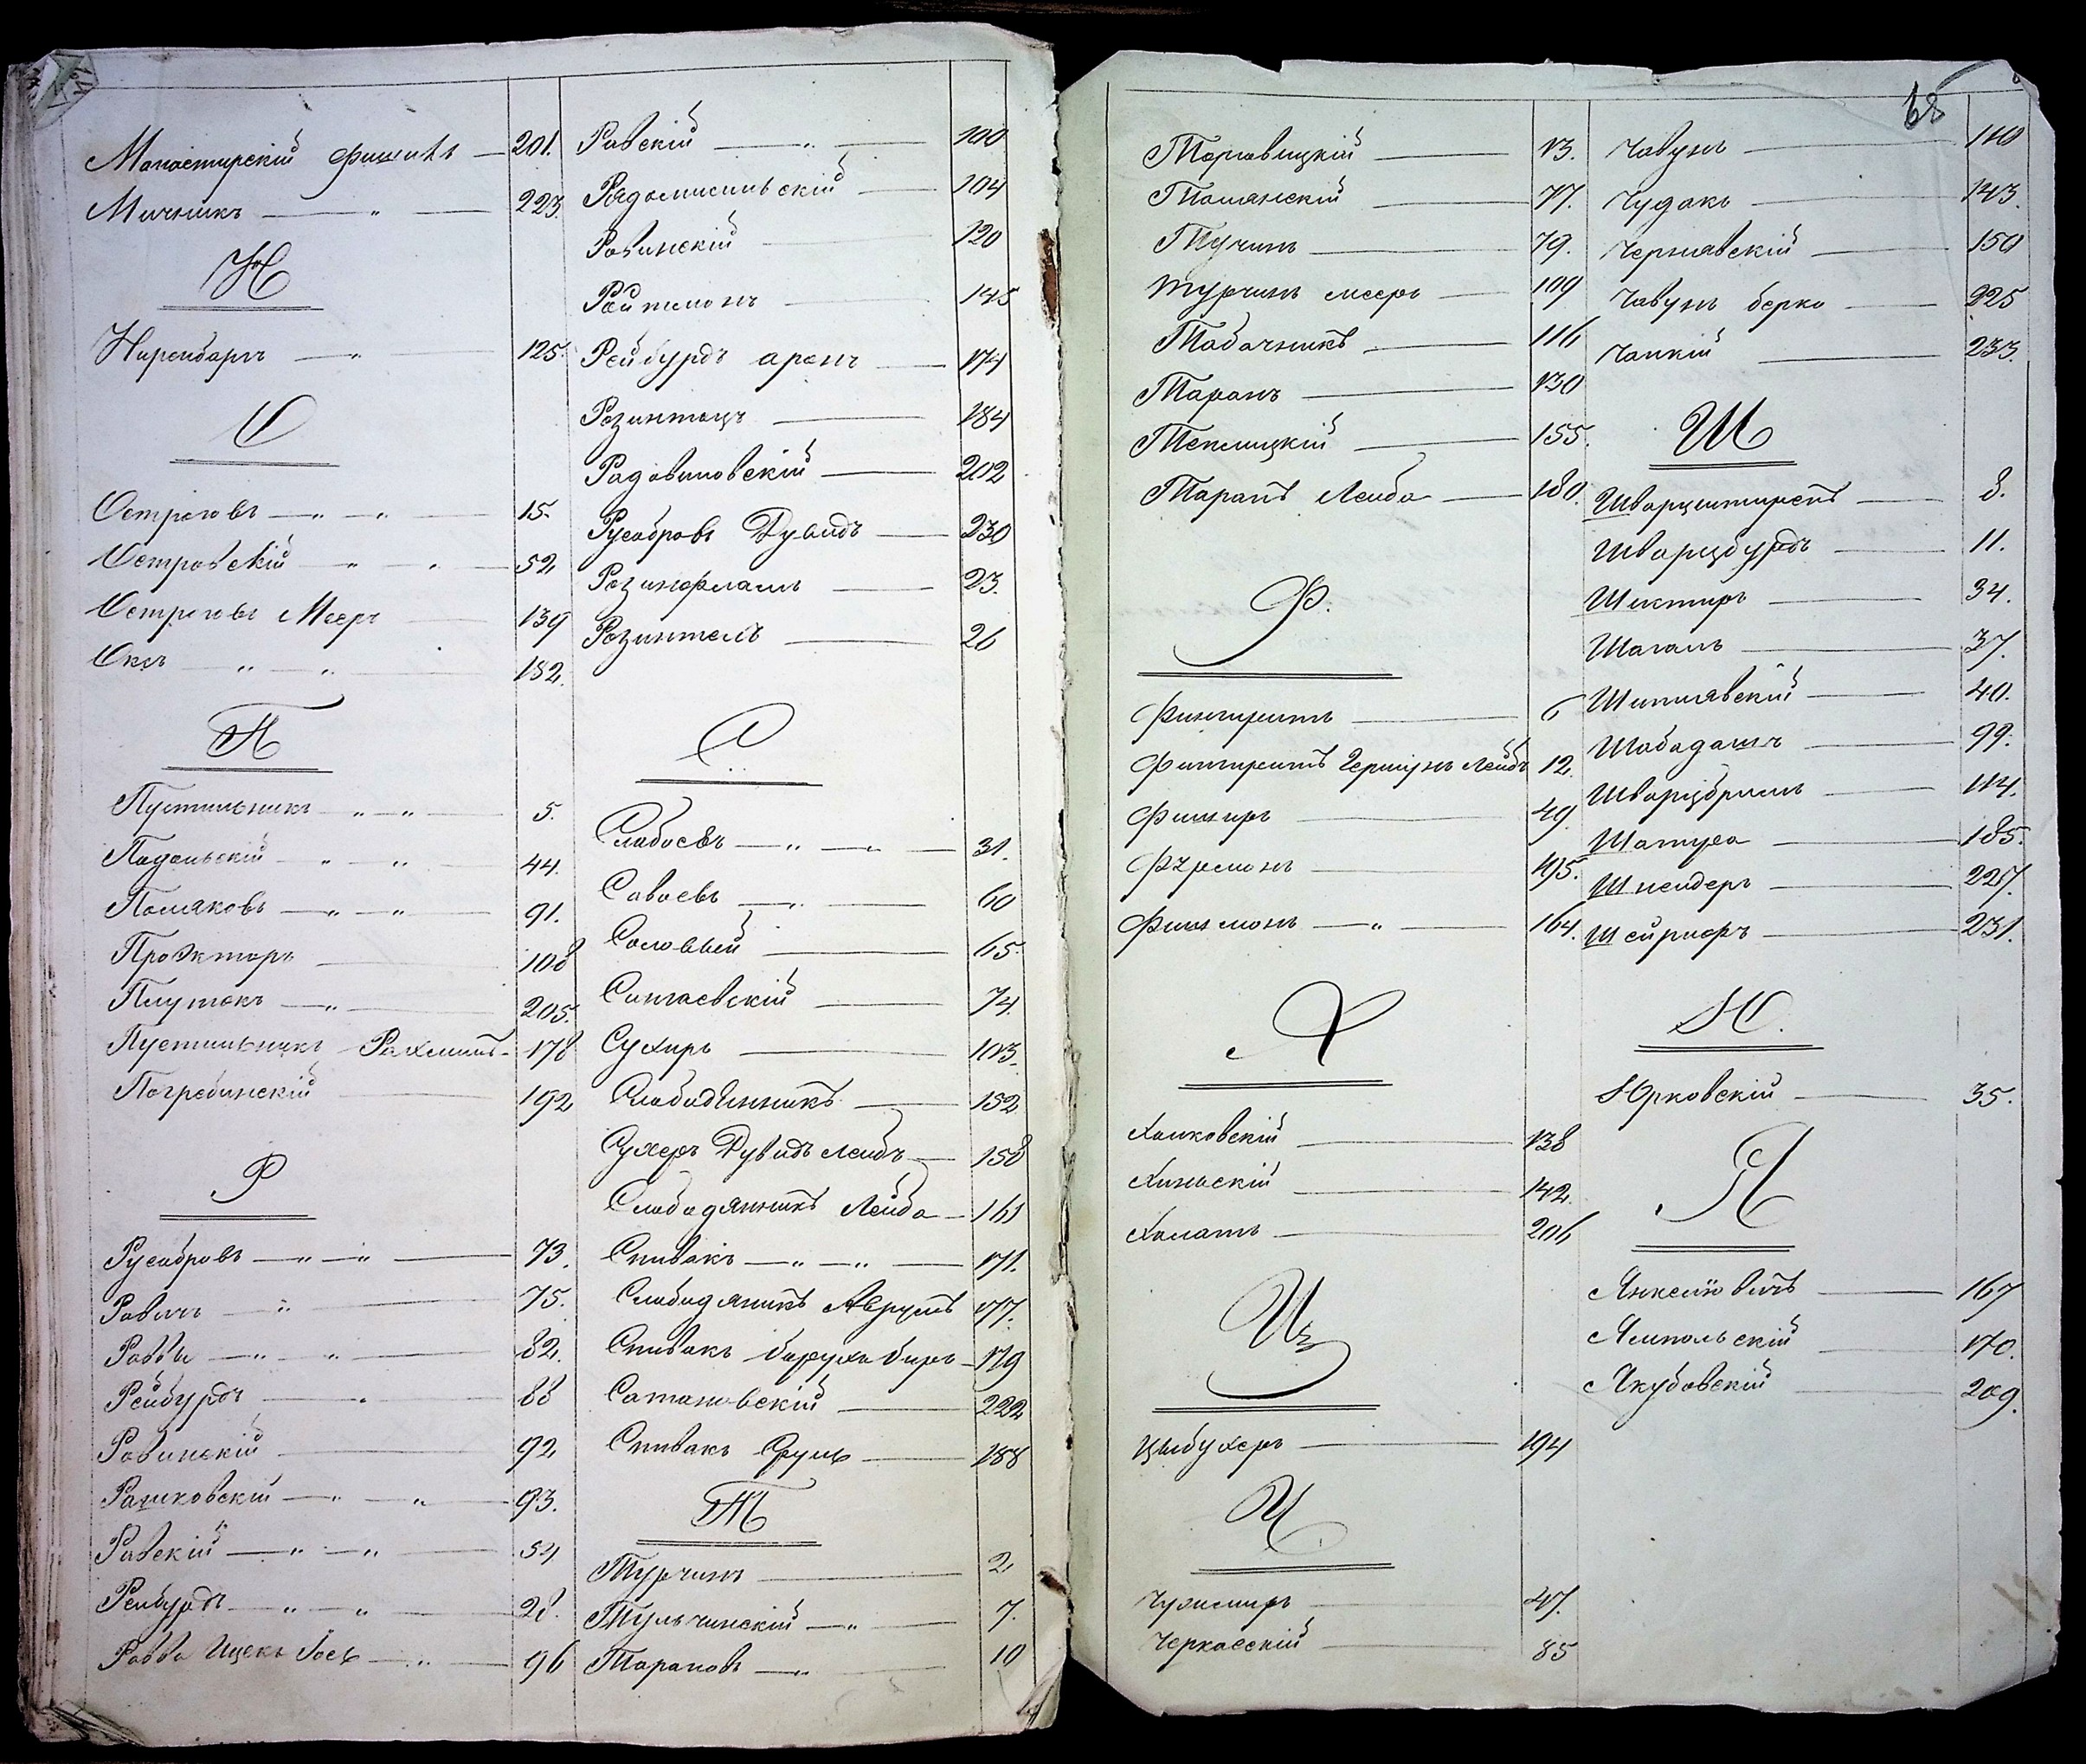 Монастирскій Фишель — 201.
Мичникъ — " — 223
Н
Ниренбергъ — " — 125.
О
Острговъ — " — " — 15.
Островскій — " — " — 52
Острговъ Меєръ — 139
Оксъ — " — " — 182.
П
Пустильникъ — " — " 5.
Подольскій — " — " 44.
Поляковъ — " — " — 91.
Прожторъ — 108
Плутокъ — " — 205.
Пустильникъ Рахмилъ — 178
Погребинскій — 192
Р
Русобровъ — " — " — 73.
Равичъ — " — 75.
Раввы — " — " — 82.
Рейбурдъ — " — 88
Ровинскій — 92
Рашковскій — " — " — 93.
Равскій — " — " — 54
Рейбурдъ — " — " — 28.
Равва Ицекъ Іось — " — 96
Равскій — " — 100
Радомисльскій — 104
Ровинскій — 120
Ройтманъ — 145
Рейбурдъ Аронъ — 174
Розинтоцъ — 184
Родовиловскій — 202
Русобровъ Дувидъ — 230
Розинфламъ — 23.
Розинтелъ — 26
С
Слабоєвъ — " — " — 31.
Савоєвъ — " — 60
Соловьей — 65.
Сингаєвскій — 74.
Сухиръ — 103.
Слабодянникъ — 152
Сухеръ Дувидъ Лейбъ — 158
Слабодянникъ Лейба — 161
Спивакъ — " — " — 171.
Слабодяникъ Аврумъ 177.
Спивакъ Барухъ Беръ — 179
Сатановскій — 222
Спивакъ Сруль — 188
Т
Турчинъ — 2
Тульчинскій — " — 7.
Тарановъ — " — 10
68
Торговицкій — 13.
Томянскій — 77.
Тучинъ — 79.
Турчинъ Меєръ — 109
Табачникъ — 116
Таранъ — 130
Теплицкій — 155.
Таранъ Лейба — 180.
Ф.
Фингирутъ — 6
Фингирутъ Гершунъ Лейбъ 12.
Фиширъ — 49
Фурманъ — 195.
Фишманъ — " — 164.
Х
Халковскій — 138
Хинскій — 142.
Халатъ — 206
Ц
Цыбухеръ — 194
Ч
Чузмиръ — 47.
Черкасскій — 85
Чавунъ — 110
Чудакъ — 143.
Чернявскій — 150
Чавунъ Берко — 225
Чапкій — 233.
Ш
Шварцштирентъ — 8.
Шварцбурдъ — 11.
Шиктиръ — 34.
Шагалъ — 37.
Шиплявскій — 40.
Шабадашъ — 99.
Шварцбримъ — 114.
Шатуха — 185.
Шнейдеръ — 227.
Шейрисръ — 231.
Ю.
Юрковскій — 35.
Я
Янкелювичъ — 167
Ямпольскій — 170.
Якубовскій — 209.